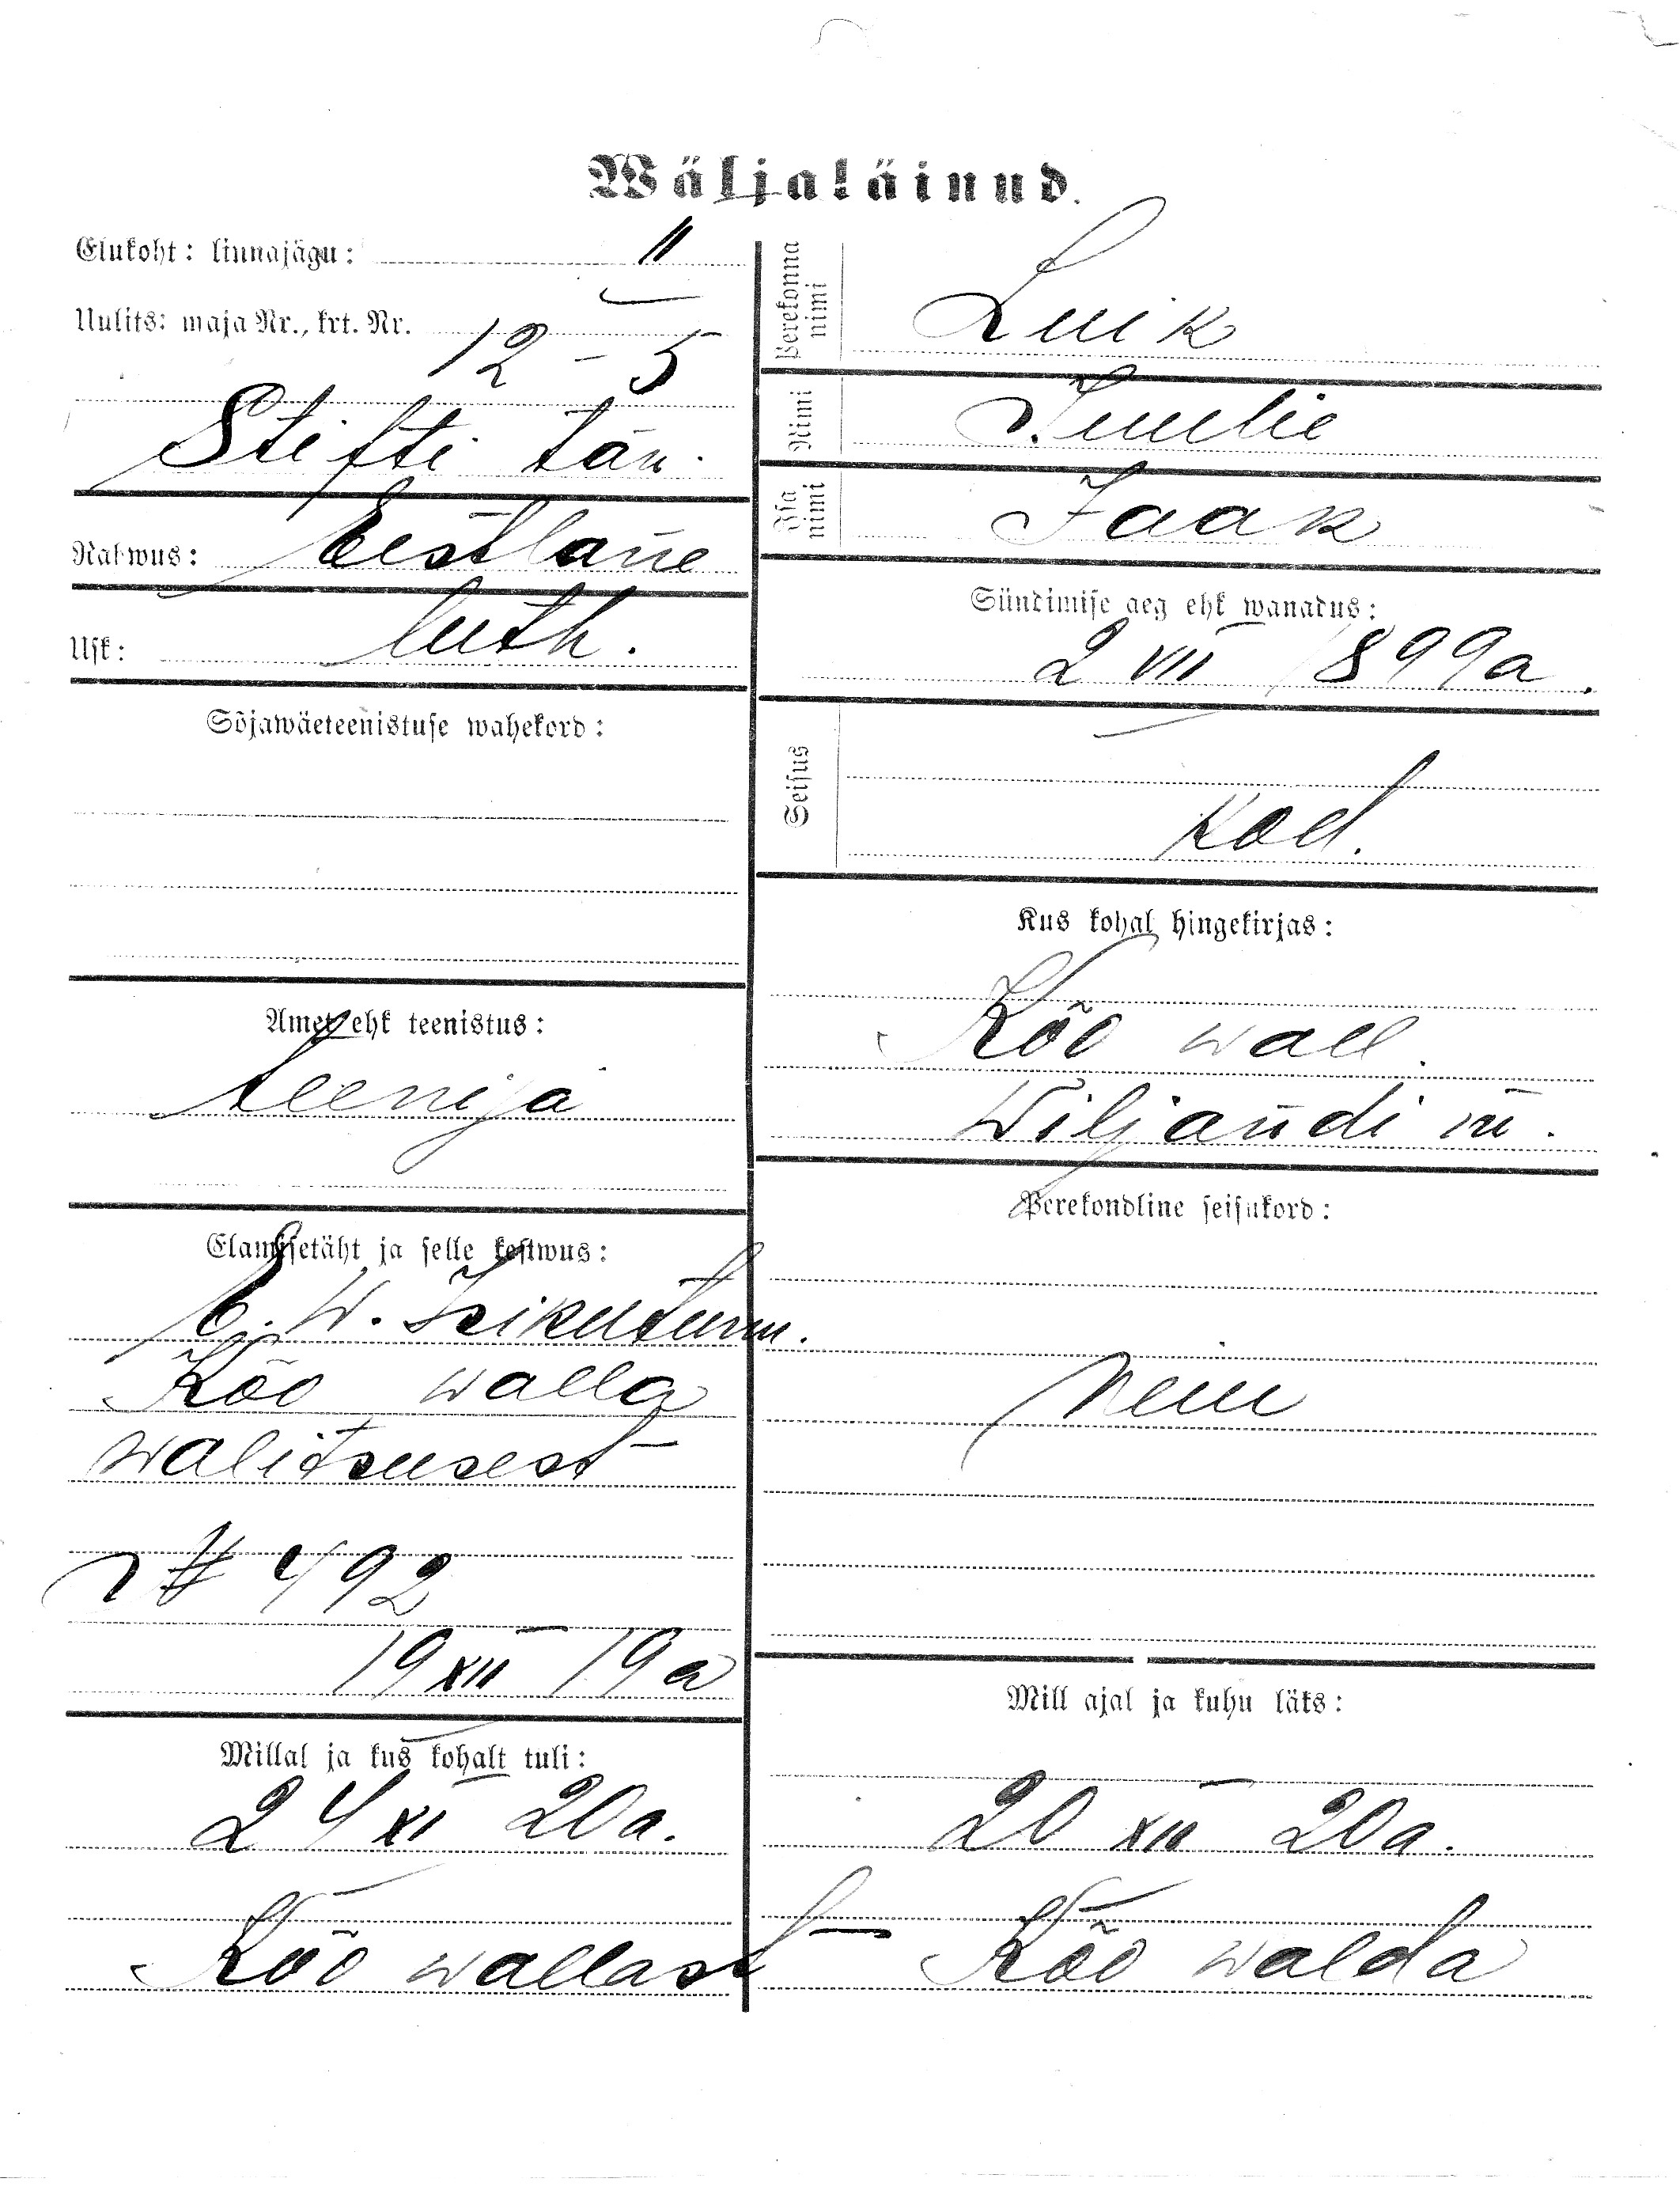 Wäljaläinud.
Elukoht: linnajägu: II
Uulits: maja Nr., krt. Nr.
12 - 5
Stifti tän.
Rahwus: Eestlane
Usk: luth.
Sõjawäeteenistuse wahekord:
Amet ehk teenistus:
teenija
Elamisetäht ja selle kestwus:
E. W. Isikutunn.
Kõo walla
walitsusest
№ 492
19 XII 19a
Millal ja kus kohalt tuli:
24 XI 20a.
Kõo wallast
Perekonna nimi
Luik
Nimi
Juulie
Isa nimi
Jaak
Sündimise aeg ehk wanadus:
2 VII 1899a.
Seisus
Kod.
Kus kohal hingekirjas:
Kõo wall.
Wiljandi m.
Perekondline seisukord:
Neiu
Mill ajal ja kuhu läks:
20 XII 20a.
Kõo walda